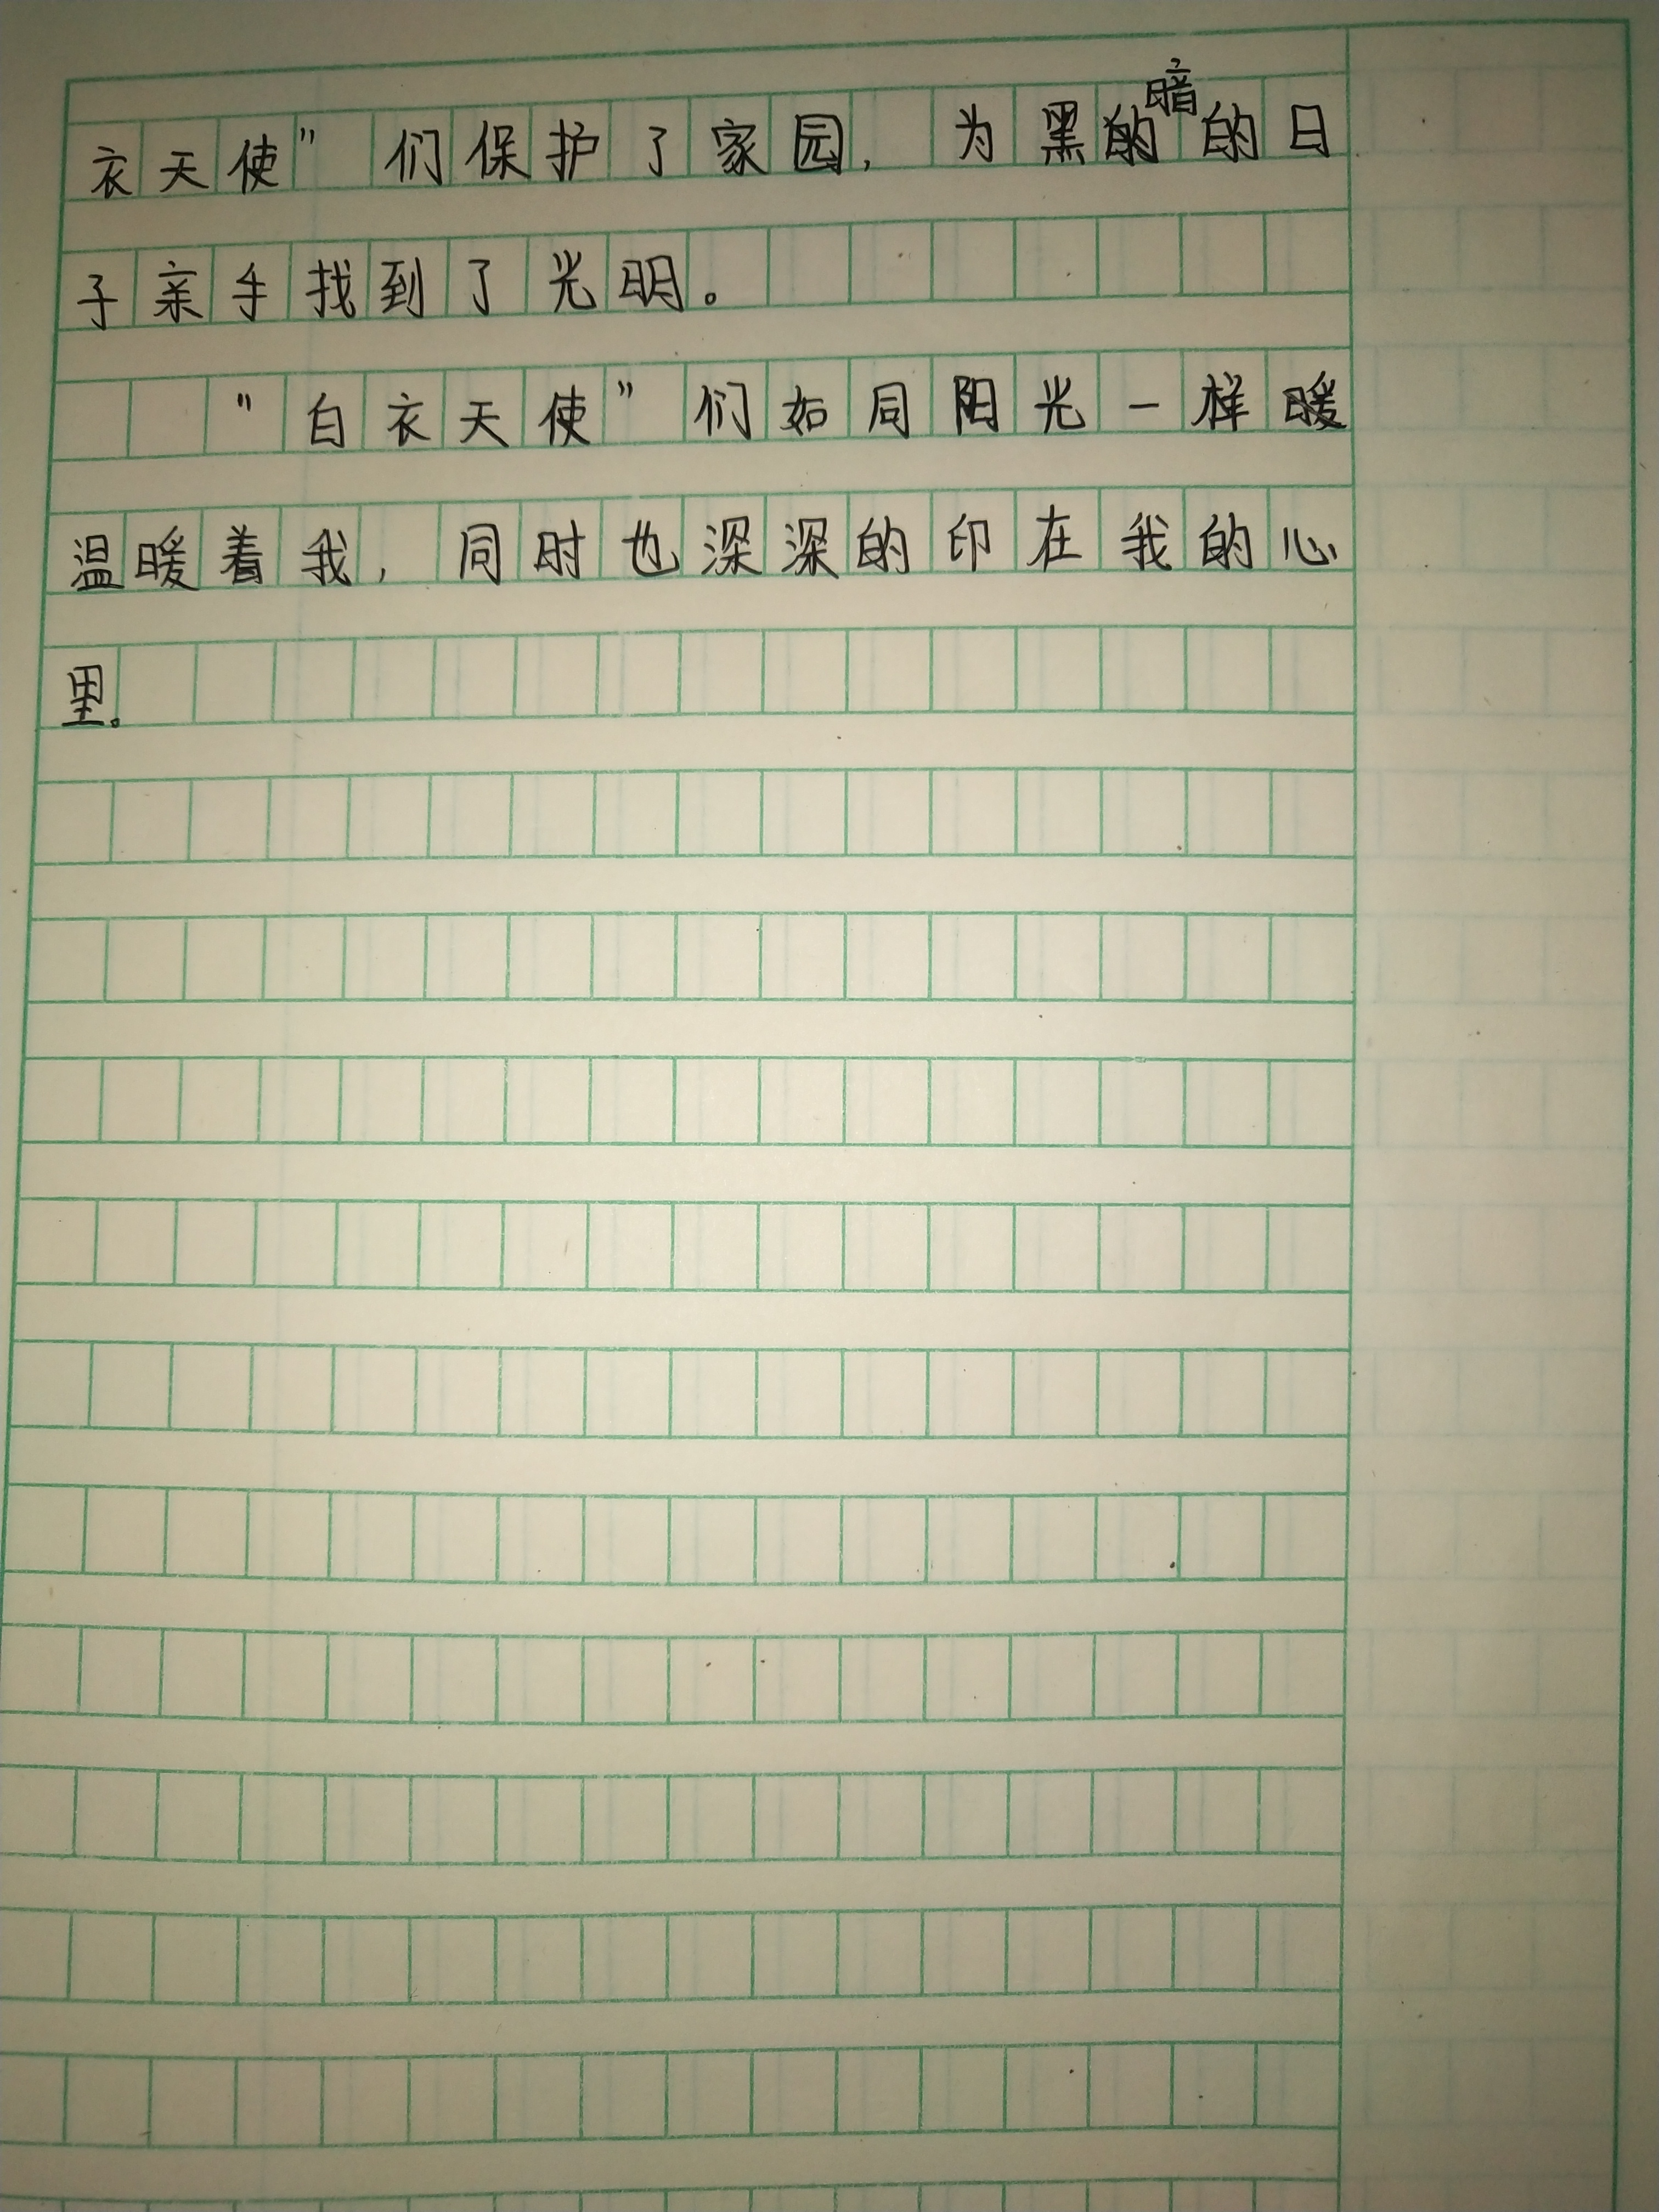 衣天使"们保护了家园，为黑暗的日
子亲手找到了光明。
"白衣天使"们如同阳光一样
温暖着我，同时也深深的印在我的心
里。